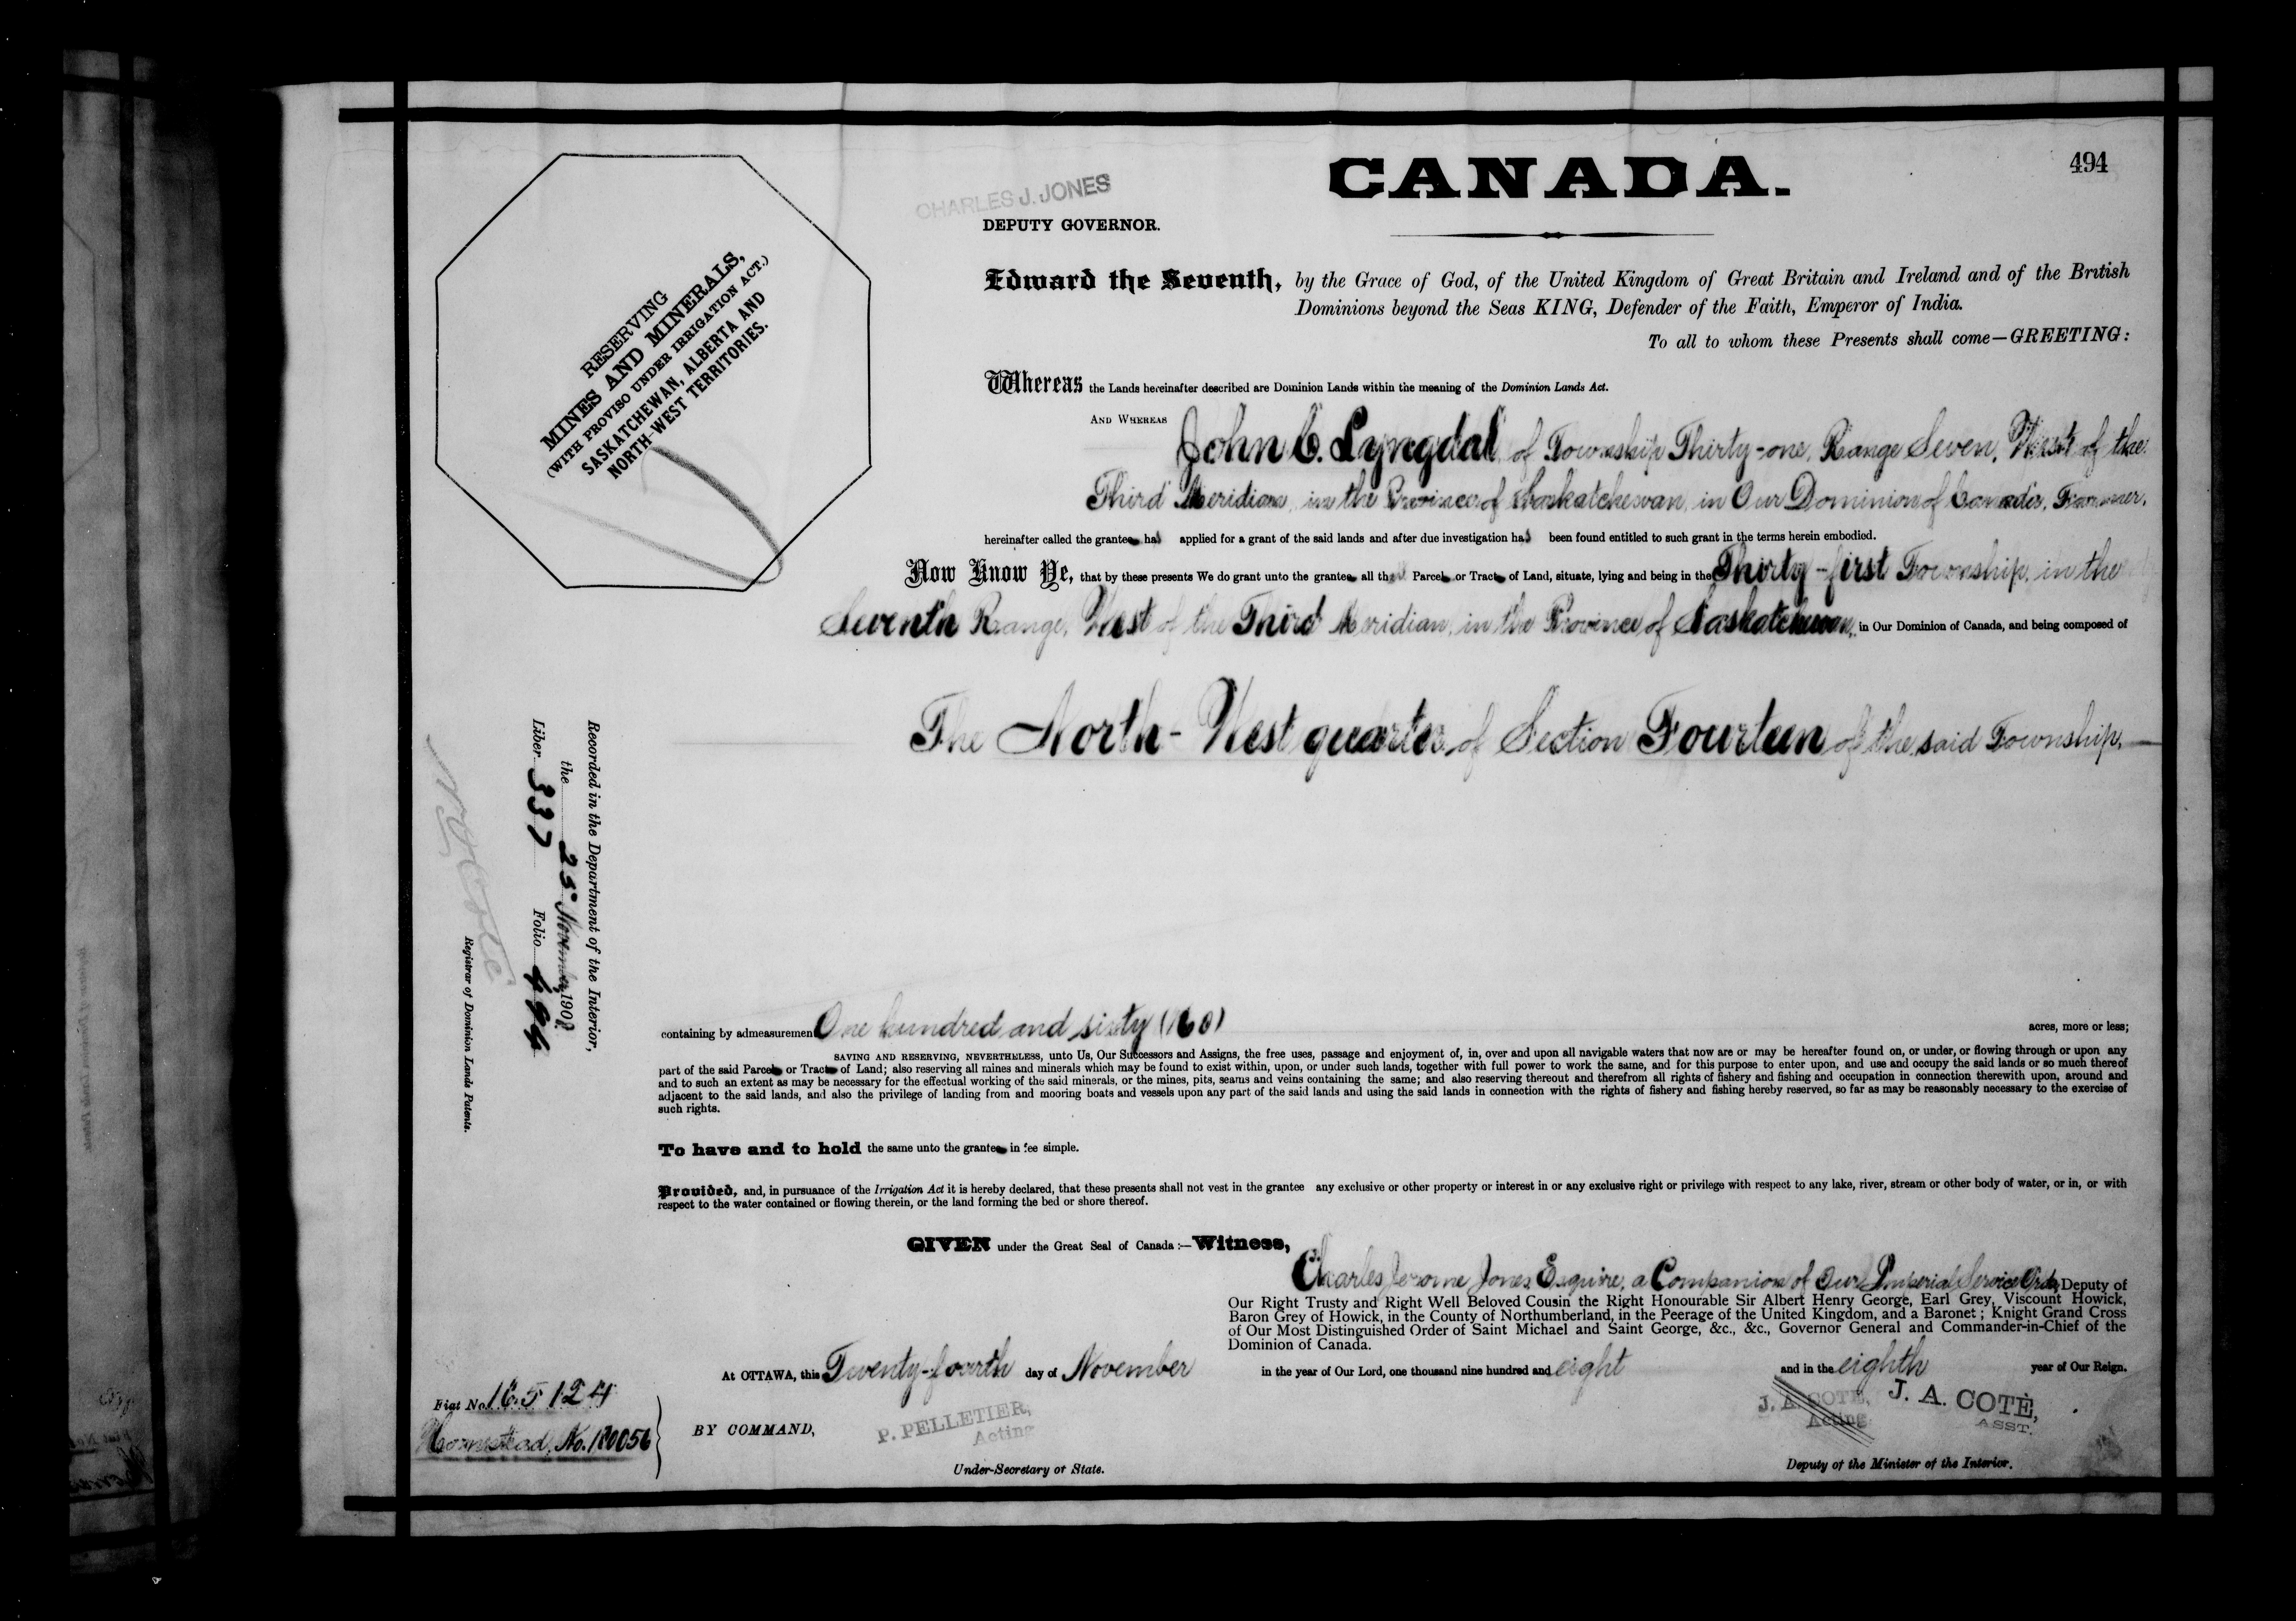 494
CANADA.
CHARLES J. JONES
DEPUTY GOVERNOR.
RESERVING
MINES AND MINERALS,
(WITH PROVISO UNDER IRRIGATION ACT.)
SASKATCHEWAN, ALBERTA AND
NORTH-WEST TERRITORIES.
Edward the Seventh, by the Grace of God, of the United Kingdom of Great Britain and Ireland and of the British
Dominions beyond the Seas KING, Defender of the Faith, Emperor of India.
To all to whom these Presents shall come—GREETING:
Whereas the Lands hereinafter described are Dominion Lands within the meaning of the Dominion Lands Act.
AND WHEREAS John C. Lyngdal of Township Thirty-one, Range Seven, West of the
Third Meridian, in the Province of Saskatchewan, in Our Dominion of Canada, Farmer,
hereinafter called the grantee has applied for a grant of the said lands and after due investigation has been found entitled to such grant in the terms herein embodied.
Now Know Ye, that by these presents We do grant unto the grantee all that Parcel or Tract of Land, situate, lying and being in the Thirty-first Township, in the
Seventh Range, West of the Third Meridian, in the Province of Saskatchewan, in Our Dominion of Canada, and being composed of
The North-West quarter of Section Fourteen of the said Township,
Recorded in the Department of the Interior,
the 25th November 1908
Liber 337 Folio 494
Registrar of Dominion Lands Patents.
containing by admeasurement One hundred and sixty (160) acres, more or less;
SAVING AND RESERVING, NEVERTHELESS, unto Us, Our Successors and Assigns, the free uses, passage and enjoyment of, in, over and upon all navigable waters that now are or may be hereafter found on, or under, or flowing through or upon any
part of the said Parcel or Tract of Land; also reserving all mines and minerals which may be found to exist within, upon, or under such lands, together with full power to work the same, and for this purpose to enter upon, and use and occupy the said lands or so much thereof
and to such an extent as may be necessary for the effectual working of the said minerals, or the mines, pits, seams and veins containing the same; and also reserving thereout and therefrom all rights of fishery and fishing and occupation in connection therewith upon, around and
adjacent to the said lands, and also the privilege of landing from and mooring boats and vessels upon any part of the said lands and using the said lands in connection with the rights of fishery and fishing hereby reserved, so far as may be reasonably necessary to the exercise of
such rights.
To have and to hold the same unto the grantee in fee simple.
Provided, and, in pursuance of the Irrigation Act it is hereby declared, that these presents shall not vest in the grantee any exclusive or other property or interest in or any exclusive right or privilege with respect to any lake, river, stream or other body of water, or in, or with
respect to the water contained or flowing therein, or the land forming the bed or shore thereof.
GIVEN under the Great Seal of Canada:—Witness,
Charles Jerome Jones Esquire, a Companion of Our Imperial Service Order, Deputy of
Our Right Trusty and Right Well Beloved Cousin the Right Honourable Sir Albert Henry George, Earl Grey, Viscount Howick,
Baron Grey of Howick, in the County of Northumberland, in the Peerage of the United Kingdom, and a Baronet; Knight Grand Cross
of Our Most Distinguished Order of Saint Michael and Saint George, &c., &c., Governor General and Commander-in-Chief of the
Dominion of Canada.
At OTTAWA, this Twenty-fourth day of November in the year of Our Lord, one thousand nine hundred and eight and in the eighth year of Our Reign.
Fiat No. 165124
Homestead, No. 180056
BY COMMAND,
P. PELLETIER,
Acting
Under-Secretary of State.
J. A. COTE,
Acting
J. A. COTÈ,
ASST.
Deputy of the Minister of the Interior.